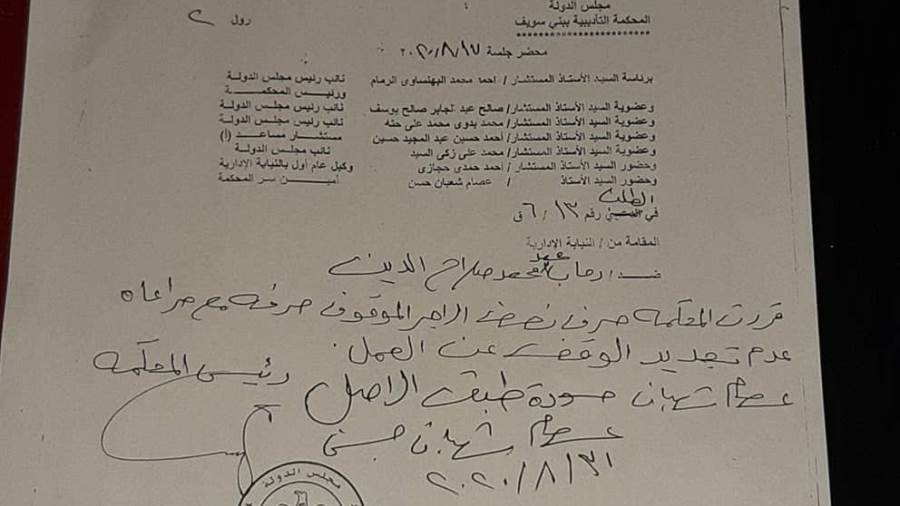 مجلس الدولة
المحكمة التأديبية ببني سويف
رول ٢
محضر جلسة ٢٠٢٠/٨/١٧
برئاسة السيد الأستاذ المستشار/ احمد محمد البهنساوى الرمام نائب رئيس مجلس الدولة
ورئيس المحكمة
وعضوية السيد الأستاذ المستشار/ صالح عبد الجابر صالح يوسف نائب رئيس مجلس الدولة
وعضوية السيد الأستاذ المستشار/ محمد بدوى محمد على حته نائب رئيس مجلس الدولة
وعضوية السيد الأستاذ المستشار/ أحمد حسين عبد المجيد حسين مستشار مساعد (أ)
وعضوية السيد الأستاذ المستشار/ محمد على زكى السيد نائب مجلس الدولة
وحضور السيد الأستاذ المستشار/ احمد حمدى حجازى وكيل عام أول بالنيابة الإدارية
وحضور السيد الأستاذ / عصام شعبان حسن أمين سر المحكمة
الطلب
في رقم ٦/١٣ ق
المقامة من / النيابة الإدارية
ضد / رحاب محمد صلاح الدين
قررت المحكمة صرف نصف الاجر الموقوف صرفه مع مراعاه
عدم تجديد الوقف عن العمل.
رئيس المحكمة
عصام شعبان صورة طبق الاصل
عصام شعبان حسن
٢٠٢٠/٨/٣١
مجلس الدولة